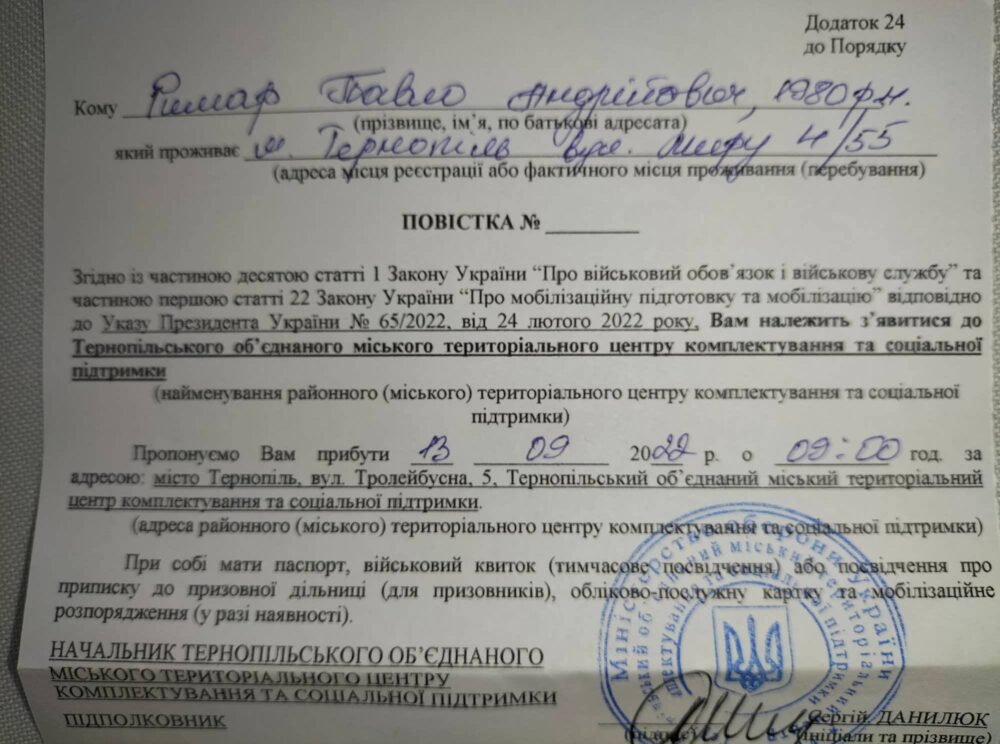 Додаток 24
до Порядку
Кому Римар Павло Андрійович, 1980 р.н.
(прізвище, ім`я, по батькові адресата)
який проживає м. Тернопіль вул. Миру 4/55
(адреса місця реєстрації або фактичного місця проживання (перебування)
ПОВІСТКА №
Згідно із частиною десятою статті 1 Закону України “Про військовий обов`язок і військову службу” та
частиною першою статті 22 Закону України “Про мобілізаційну підготовку та мобілізацію” відповідно
до Указу Президента України № 65/2022, від 24 лютого 2022 року, Вам належить з’явитися до
Тернопільського об’єднаного міського територіального центру комплектування та соціальної
підтримки
(найменування районного (міського) територіального центру комплектування та соціальної
підтримки)
Пропонуємо Вам прибути 13 09 2022 р. о 09:00 год. за
адресою: місто Тернопіль, вул. Тролейбусна, 5, Тернопільський об’єднаний міський територіальний
центр комплектування та соціальної підтримки.
(адреса районного (міського) територіального центру комплектування та соціальної підтримки)
При собі мати паспорт, військовий квиток (тимчасове посвідчення) або посвідчення про
приписку до призовної дільниці (для призовників), обліково-послужну картку та мобілізаційне
розпорядження (у разі наявності).
Міністерство оборони України
об’єднаний міський територіальний
комплектування та соціальної підтримки
НАЧАЛЬНИК ТЕРНОПІЛЬСЬКОГО ОБ’ЄДНАНОГО
МІСЬКОГО ТЕРИТОРІАЛЬНОГО ЦЕНТРУ
КОМПЛЕКТУВАННЯ ТА СОЦІАЛЬНОЇ ПІДТРИМКИ
ПІДПОЛКОВНИК Сергій ДАНИЛЮК
(підпис) (ініціали та прізвище)